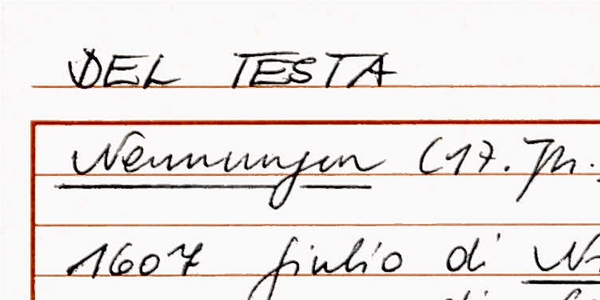 DEL TESTA
Nennungen (17. Jh.
1607 Giulio di
di